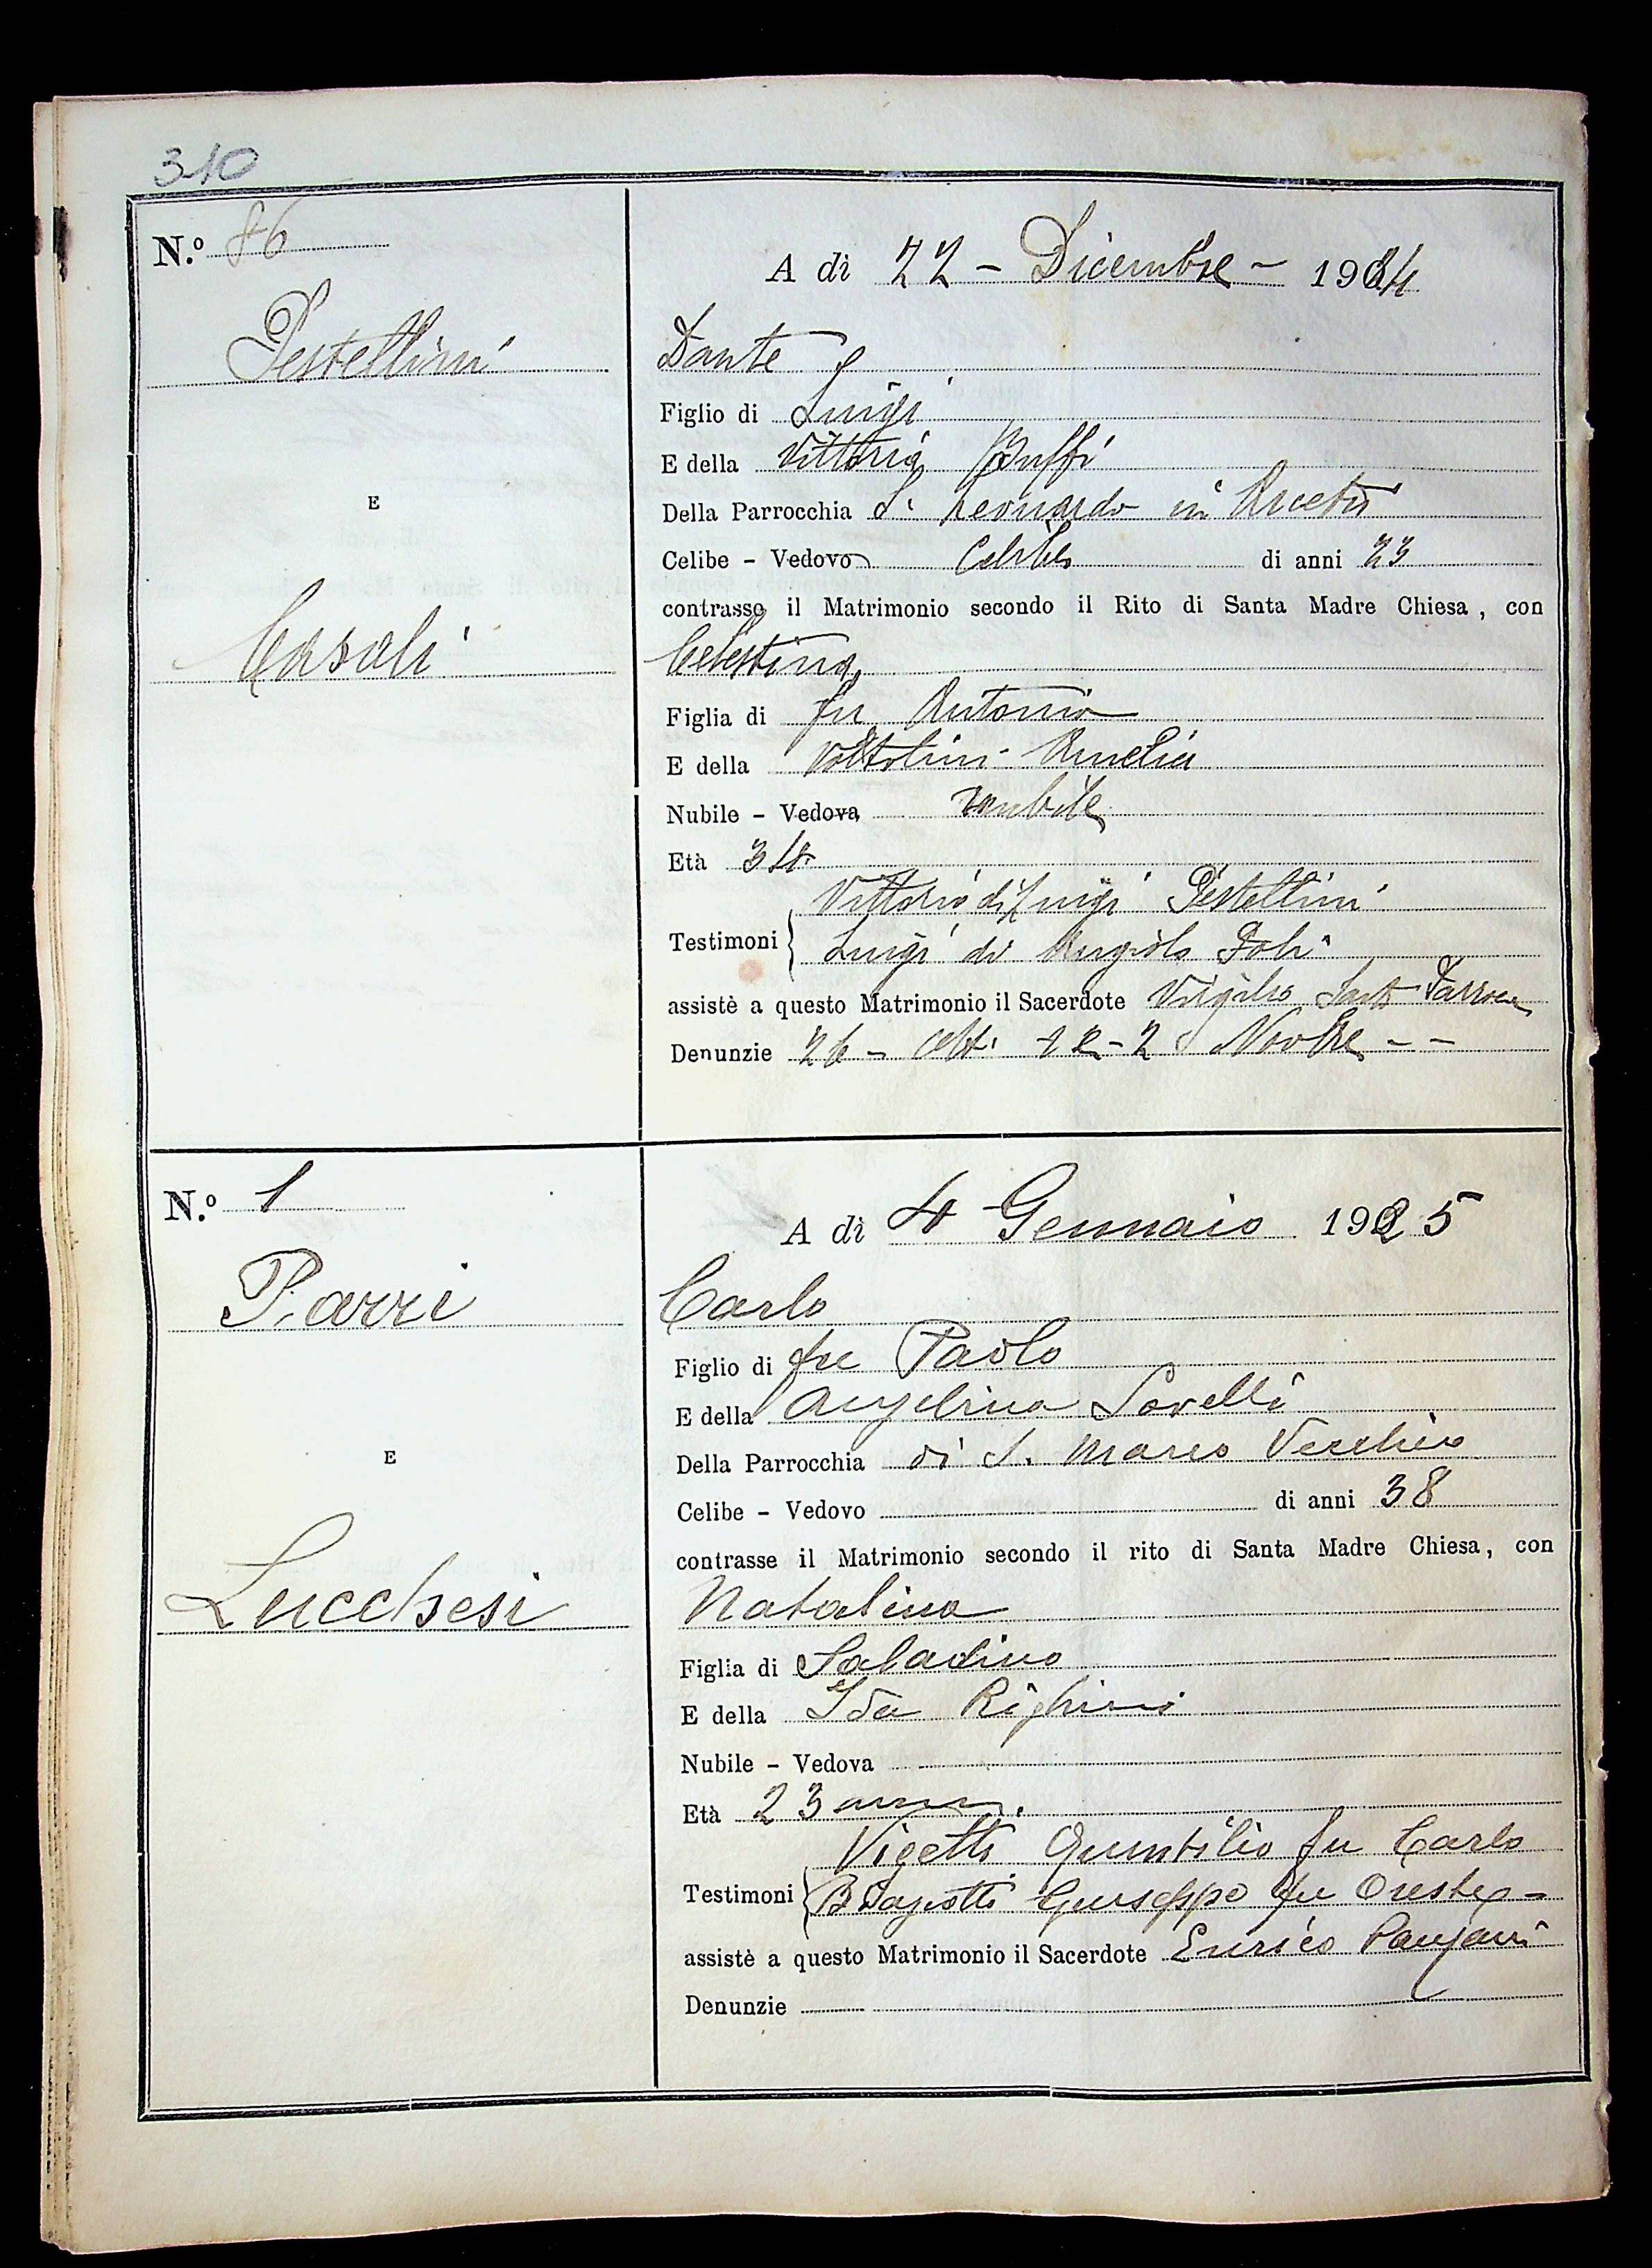 310
N.º 86
A dì 22 - Dicembre - 1924
Pestellini
Dante
Figlio di Luigi
E della Vittoria Buffi
E
Della Parrocchia S. Leonardo in Arcetri
Celibe - Vedovo Celibe di anni 23
contrasse il Matrimonio secondo il Rito di Santa Madre Chiesa, con
Casali
Celestina
Figlia di fu Antonio
E della Voltolini Amelia
Nubile - Vedova nubile
Età 34
Vittorio di Luigi Pestellini
Testimoni Luigi di Angiolo
assistè a questo Matrimonio il Sacerdote Virgilio
Denunzie 26 - Ott. - 2 Novbre - -
N.º 1
A dì 4 Gennaio 1925
Parri
Carlo
Figlio di fu Paolo
E della Angelina Sovelli
E
Della Parrocchia di S. Marco Vecchio
Celibe - Vedovo di anni 38
contrasse il Matrimonio secondo il rito di Santa Madre Chiesa, con
Lucchesi
Natalina
Figlia di Saladino
E della Ida Righini
Nubile - Vedova
Età 23 anni.
Vigetti Quintilio fu Carlo
Testimoni Biagiotti Giuseppe fu Oreste -
assistè a questo Matrimonio il Sacerdote Enrico
Denunzie